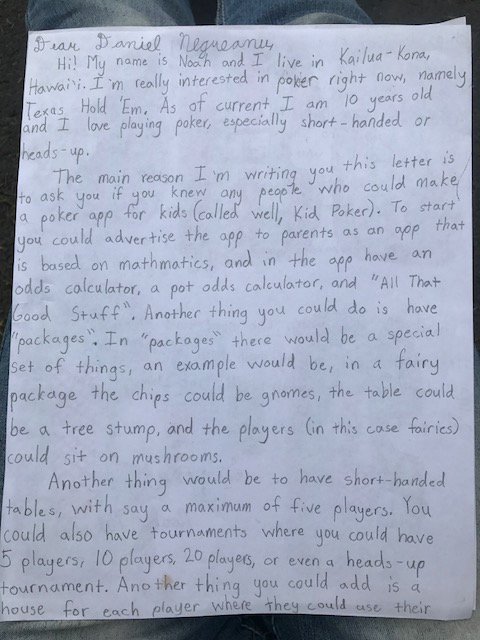 Dear Daniel Negreanu,
Hi! My name is Noah and I live in Kailua-Kona,
Hawai'i. I'm really interested in poker right now, namely
Texas Hold 'Em. As of current I am 10 years old
and I love playing poker, especially short-handed or
heads-up.
The main reason I'm writing you this letter is
to ask you if you knew any people who could make
a poker app for kids (called well, Kid Poker). To start
you could advertise the app to parents as an app that
is based on mathmatics, and in the app have an
odds calculator, a pot odds calculator, and "All That
Good Stuff". Another thing you could do is have
"packages". In "packages" there would be a special
set of things, an example would be, in a fairy
package the chips could be gnomes, the table could
be a tree stump, and the players (in this case fairies)
could sit on mushrooms.
Another thing would be to have short-handed
tables, with say a maximum of five players. You
could also have tournaments where you could have
5 players, 10 players, 20 players, or even a heads-up
tournament. Another thing you could add is a
house for each player where they could use their